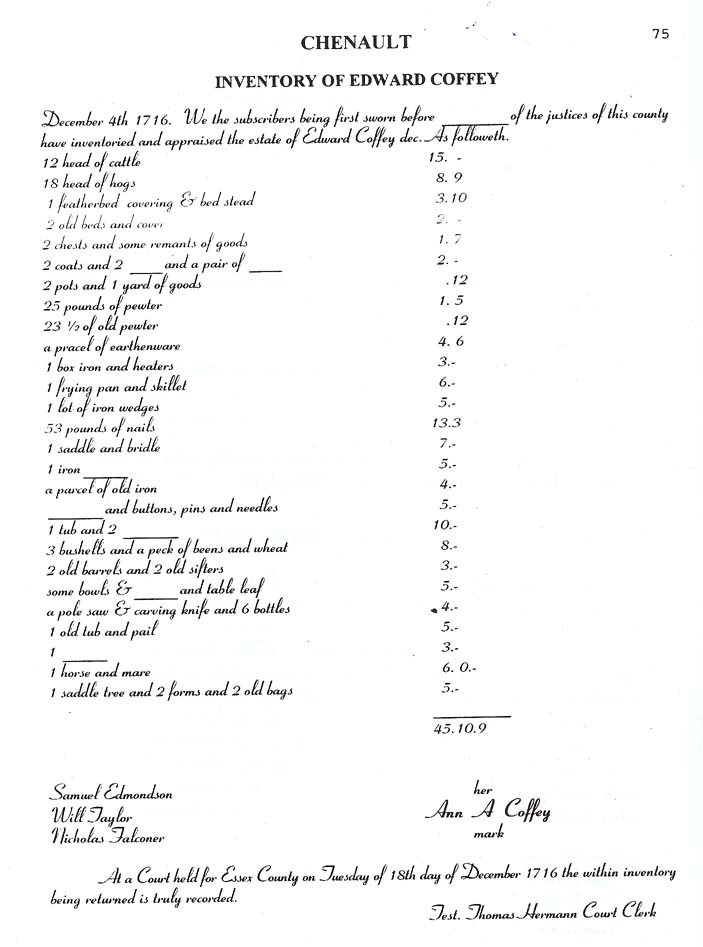 75
CHENAULT
INVENTORY OF EDWARD COFFEY
December 4th 1716. We the subscribers being first sworn before ________ of the justices of this county
have inventoried and appraised the estate of Edward Coffey dec. As followeth.
12 head of cattle 15. -
18 head of hogs 8. 9
1 featherbed covering & bed stead 3.10
2 old beds and cover 2. -
2 chests and some remants of goods 1. 7
2 coats and 2 ____ and a pair of ____ 2. -
2 pots and 1 yard of goods .12
25 pounds of pewter 1. 5
23 ½ of old pewter .12
a pracel of earthenware 4. 6
1 box iron and heaters 3.-
1 frying pan and skillet 6.-
1 lot of iron wedges 5.-
53 pounds of nails 13.3
1 saddle and bridle 7.-
1 iron ______ 5.-
a parcel of old iron 4.-
______ and buttons, pins and needles 5.-
1 tub and 2 ______ 10.-
3 bushells and a peck of beens and wheat 8.-
2 old barrels and 2 old sifters 3.-
some bowls & _____ and table leaf 5.-
a pole saw & carving knife and 6 bottles 4.-
1 old tub and pail 5.-
1 _____ 3.-
1 horse and mare 6. 0.-
1 saddle tree and 2 forms and 2 old bags 5.-
45.10.9
Samuel Edmondson
Will Taylor
Nicholas Falconer
her
Ann A Coffey
mark
At a Court held for Essex County on Tuesday of 18th day of December 1716 the within inventory
being returned is truly recorded.
Test. Thomas Hermann Court Clerk